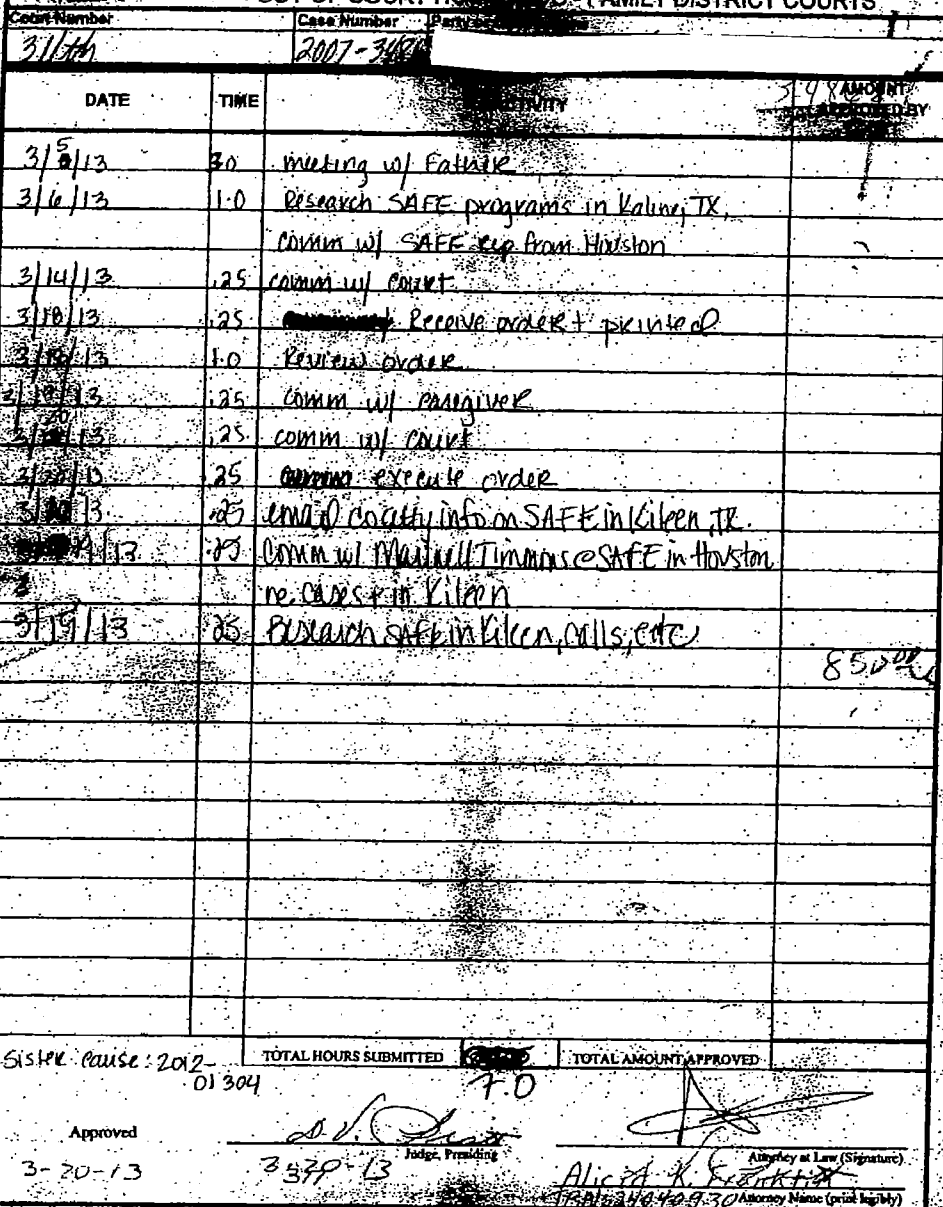 OF COURT FAMILY DISTRICT COURTS
Court Number Case Number
311th 2007-
DATE TIME ACTIVITY AMOUNT
BY
3/5/13 3.0 meeting w/ Father
3/6/13 1.0 Research SAFE programs in TX,
comm w/ SAFE rep from Houston
3/14/13 .25 comm w/ court
3/18/13 .25 Receive order + printed
3/18/13 1.0 Review order
.25 comm w/ caregiver
.25 comm w/ court
3/20/13 .25 execute order
.25 email info on SAFE in Kileen, TX.
.25 Comm w/ Timmons @ SAFE in Houston
re: in Kileen
3/19/13 .25 Research SAFE in Kileen, calls, etc
850.00
Sister cause: 2012-
01304
TOTAL HOURS SUBMITTED TOTAL AMOUNT APPROVED
7.0
Approved
Judge, Presiding Attorney at Law (Signature)
3-20-13 Alicia K. Franklin
24040930 Attorney Name (print legibly)